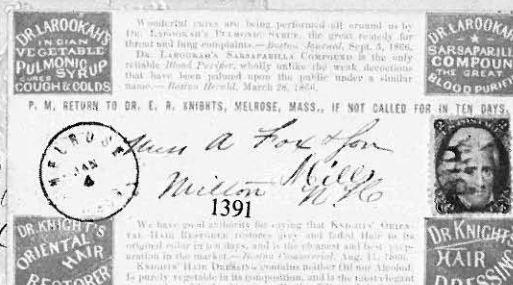 DR. LAROOKAH'S
INDIAN
VEGETABLE
PULMONIC
SYRUP
CURES
COUGH & COLDS
Wonderful cures are being performed all around us by
DR. LAROOKAH'S PULMONIC SYRUP, the great remedy for
throat and lung complaints.—Boston Journal, Sept. 3, 1866.
DR. LAROOKAH'S SARSAPARILLA COMPOUND is the only
reliable Blood Purifier, wholly unlike the weak decoctions
that have been palmed upon the public under a similar
name.—Boston Herald, March 28, 1866.
DR. LAROOKAH
SARSAPARILL
COMPOUN
THE GREAT
BLOOD PURIF
P. M. RETURN TO DR. E. R. KNIGHTS, MELROSE, MASS., IF NOT CALLED FOR IN TEN DAYS.
MELROSE
JAN
4
A Fox & Son
Milton Mills
N H
1391
DR. KNIGHT'S
ORIENTAL
HAIR
RESTORER
We have good authority for saying that KNIGHTS' ORIEN-
TAL HAIR RESTORER restores grey and faded Hair to its
original color in ten days, and is the cleanest and best prep-
aration in the market.—Boston Commercial, Aug.
KNIGHTS' HAIR DRESSING contains neither Oil nor Alcohol,
Is purely vegetable in its composition, and is the most elegant
DR. KNIGHT
HAIR
DRESSING